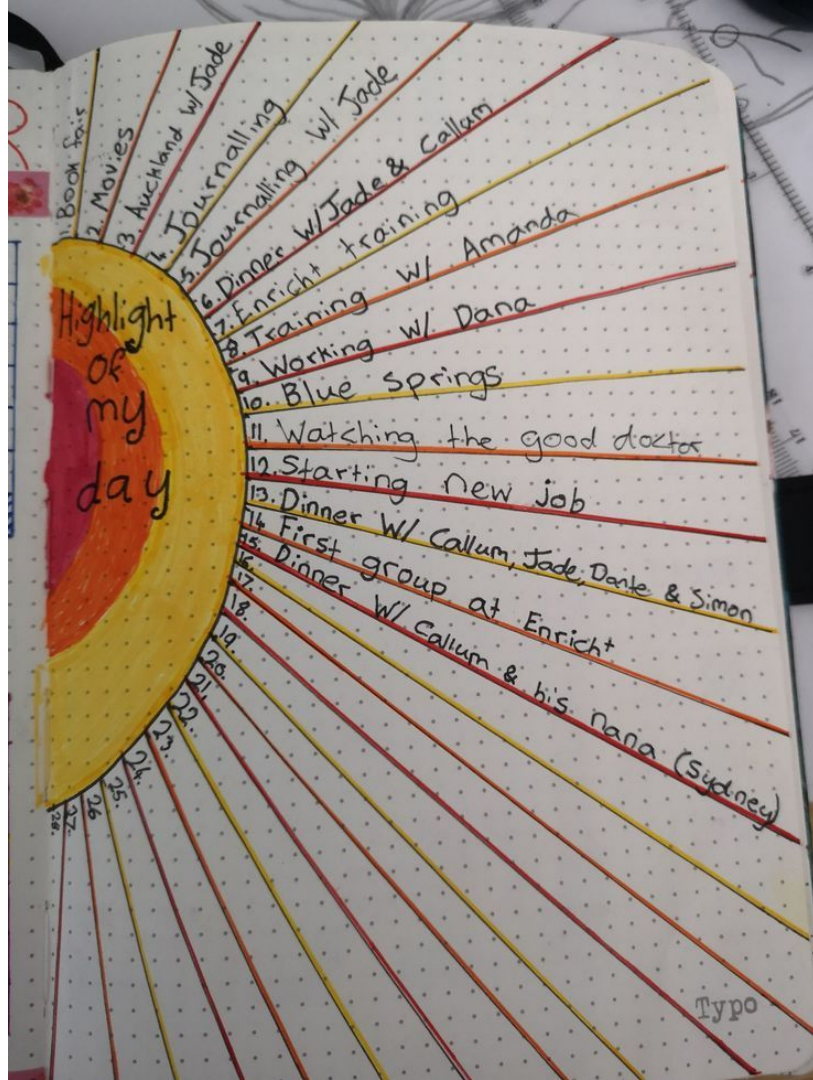 Highlight
of
my
day
1. Book fair
2. Movies
3. Auckland w/ Jade
4. Journalling
5. Journalling w/ Jade
6. Dinner w/ Jade & Callum
7. Enricht training
8. Training w/ Amanda
9. Working w/ Dana
10. Blue Springs
11. Watching the good doctor
12. Starting new job
13. Dinner w/ Callum, Jade, Dante & Simon
14. First group at Enricht
15. Dinner w/ Callum & his nana (Sydney)
16.
17.
18.
19.
20.
21.
22.
23.
24.
25.
26
27.
28
Typo